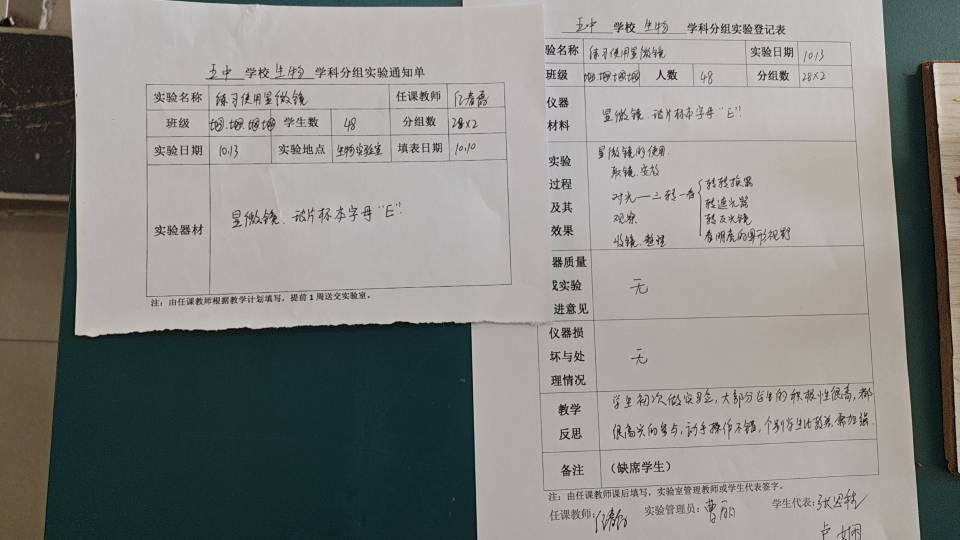 五中 学校 生物 学科分组实验通知单
实验名称 练习使用显微镜 任课教师
班级 学生数 48 分组数 28×2
实验日期 10.13 实验地点 生物实验室 填表日期 10.10
实验器材 显微镜、话片标本字母“E”.
注：由任课教师根据教学计划填写，提前1周送交实验室。
五中 学校 生物 学科分组实验登记表
验名称 练习使用显微镜 实验日期 10.13
班级 人数 48 分组数 28×2
仪器
材料
显微镜、话片标本字母“E”.
实验
过程
及其
效果
显微镜的使用.
取镜.安放
对光—三转一看
转转换器
转遮光器
转反光镜
看明亮的圆形视野
观察
收镜.整理
器质量
实验
进意见
无
仪器损
坏与处
理情况
无
教学
反思
学生初次做实验,大部分学生的积极性很高,都
很高兴的参与,动手操作不错,个别学生比较差,需加强.
备注 （缺席学生）
注：由任课教师课后填写，实验室管理教师或学生代表签字。
任课教师: 实验管理员: 曹丽 学生代表: